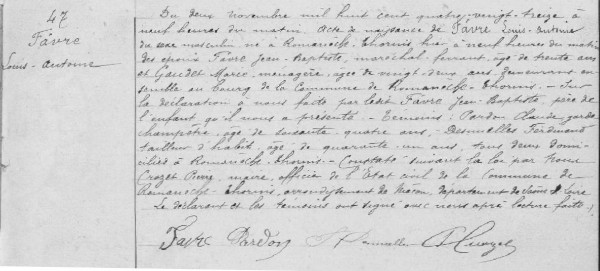 47
Favre
Louis-Antoine
Du deux novembre mil huit cent quatre-vingt-treize à
neuf heures du matin, Acte de naissance de Favre Louis-Antoine
du sexe masculin, né à Romanèche-Thorins, hier à neuf heures du matin
des époux Favre Jean-Baptiste, maréchal-ferrant, âgé de trente ans
et Gaudet Marie, ménagère, âgée de vingt-deux ans, demeurant en-
semble au bourg de la Commune de Romanèche-Thorins. – Sur
la déclaration à nous faite par ledit Favre Jean-Baptiste, père de
l'enfant qu'il nous a présenté. – Témoins: Pardon Claude, garde
champêtre, âgé de soixante-quatre ans, – Desmulles Ferdinand
tailleur d'habit, âgé de quarante-un ans, tous deux domi-
ciliés à Romanèche-Thorins. – Constaté suivant la loi par nous
Crozet maire, officier de l'Etat civil de la Commune de
Romanèche-Thorins, arrondissement de Mâcon, département de Saône et Loire
Le déclarant et les témoins ont signé avec nous après lecture faite.
Favre Pardon Crozet